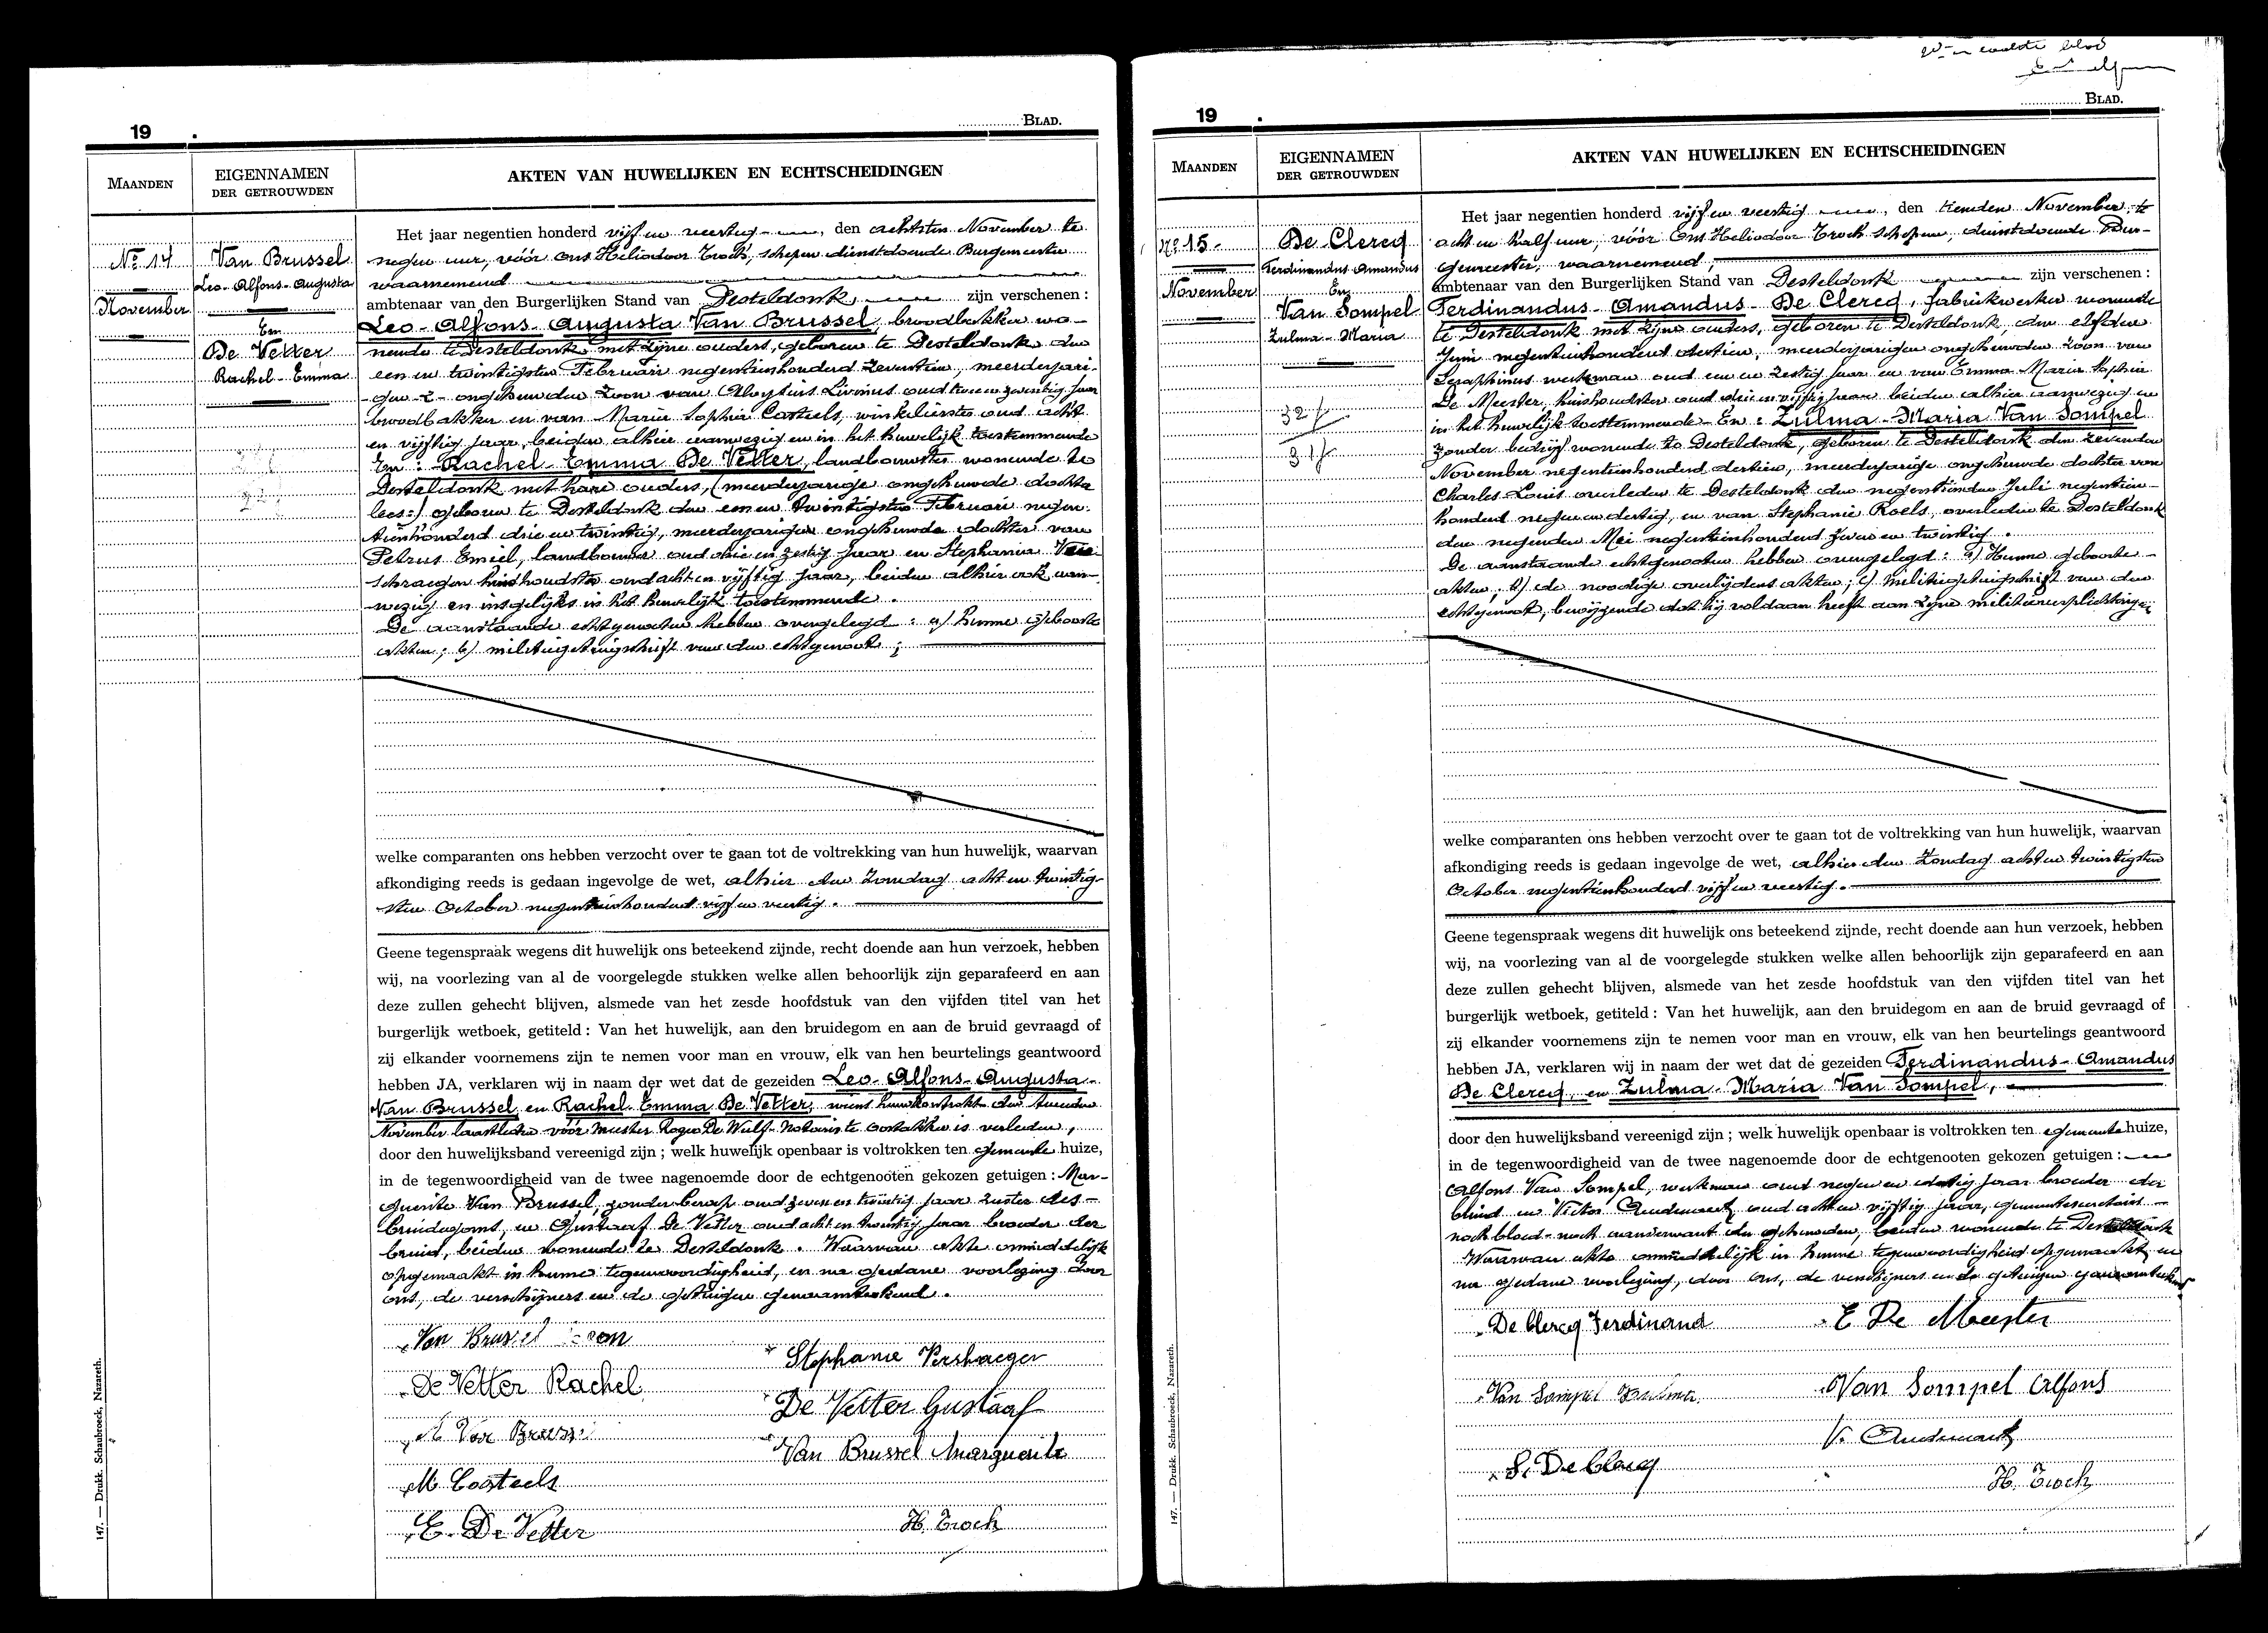 19 .
BLAD.
MAANDEN
EIGENNAMEN
DER GETROUWDEN
AKTEN VAN HUWELIJKEN EN ECHTSCHEIDINGEN
No 14
November
Van Brussel
Leo-Alfons-Augusta
En
De Vetter
Rachel-Emma
Het jaar negentien honderd vijf en veertig, den achtsten November te
negen uur, vóór ons Heliodoor Troch, schepen dienstdoende Burgemeester
waarnemend
ambtenaar van den Burgerlijken Stand van Desteldonk, zijn verschenen :
Leo-Alfons-Augusta Van Brussel, broodbakker wo-
nende te Desteldonk met zijne ouders, geboren te Desteldonk den
een en twintigsten Februari negentienhonderd zeventien, meerderjari-
gen ongehuwden zoon van Aloysius Livinus oud twee en zeventig jaar
broodbakker en van Maria Sophia Casteels, winkelierster oud acht
en vijftig jaar, beiden alhier aanwezig en in het huwelijk toestemmende
En : Rachel-Emma De Vetter, landbouwster wonende te
Desteldonk met hare ouders, (meerderjarige ongehuwde dochter
lees:) geboren te Desteldonk den een en twintigsten Februari negen-
tienhonderd drie en twintig, meerderjarigen ongehuwde dochter van
Petrus Emiel, landbouwer oud drie en zestig jaar en Stephania Ver-
schraegen huishoudster oud acht en vijftig jaar, beiden alhier ook aan-
wezig en insgelijks in het huwelijk toestemmende .
De aanstaande echtgenooten hebben overgelegd : a) hunne geboorte
akten ; b) militiegetuigschrift van den echtgenoot ;
welke comparanten ons hebben verzocht over te gaan tot de voltrekking van hun huwelijk, waarvan
afkondiging reeds is gedaan ingevolge de wet, alhier den Zondag acht en twintig-
sten October negentienhonderd vijf en veertig .
Geene tegenspraak wegens dit huwelijk ons beteekend zijnde, recht doende aan hun verzoek, hebben
wij, na voorlezing van al de voorgelegde stukken welke allen behoorlijk zijn geparafeerd en aan
deze zullen gehecht blijven, alsmede van het zesde hoofdstuk van den vijfden titel van het
burgerlijk wetboek, getiteld : Van het huwelijk, aan den bruidegom en aan de bruid gevraagd of
zij elkander voornemens zijn te nemen voor man en vrouw, elk van hen beurtelings geantwoord
hebben JA, verklaren wij in naam der wet dat de gezeiden Leo-Alfons-Augusta-
Van Brussel en Rachel-Emma De Vetter, wiens huwkontrakt den tweeden
November laatstleden vóór meester Roger De Wulf-Notaris te Oostakker is verleden,
door den huwelijksband vereenigd zijn ; welk huwelijk openbaar is voltrokken ten gemeente huize,
in de tegenwoordigheid van de twee nagenoemde door de echtgenooten gekozen getuigen : Mar-
guerite Van Brussel, zonder beroep oud zeven en twintig jaar zuster des-
bruidegoms, en Gustaaf De Vetter oud acht en twintig jaar broeder der
bruid, beiden wonende te Desteldonk . Waarvan akte onmiddelijk
opgemaakt in hunne tegenwoordigheid, en na gedane voorlezing door
ons, de verschijners en de getuigen genaamteekend .
Van Brussel Leon
De Vetter Rachel
A Van Brussel
M Casteels
E. De Vetter
Stephanie Vershaegen
De Vetter Gustaaf
Van Brussel Marguerite
H. Troch
147. — Drukk. Schaubroeck, Nazareth.
19 .
BLAD.
MAANDEN
EIGENNAMEN
DER GETROUWDEN
AKTEN VAN HUWELIJKEN EN ECHTSCHEIDINGEN
No 15-
November
De Clercq
Ferdinandus Amandus
En
Van Sompel
Zulma-Maria
32
31
Het jaar negentien honderd vijf en veertig, den tienden November te
acht en half uur, vóór Ons Heliodoor Troch Schepen, dienstdoende Bur-
gemeester, waarnemend,
ambtenaar van den Burgerlijken Stand van Desteldonk zijn verschenen :
Ferdinandus-Amandus-De Clercq, fabriekwerker wonende
te Desteldonk met zijne ouders, geboren te Desteldonk den elfden
Juni negentienhonderd dertien, meerderjarigen ongehuwden zoon van
Seraphinus werkman oud een en zestig jaar en van Emma Maria Sophia
De Meester, huishoudster oud drie en vijftig jaar beiden alhier aanwezig en
in het huwelijk toestemmende - En : Zulma-Maria Van Sompel
zonder bedrijf wonende te Desteldonk, geboren te Desteldonk den zevenden
November negentienhonderd dertien, meerderjarige ongehuwde dochter van
Charles Louis overleden te Desteldonk den negentienden Juli negentien-
honderd negen en dertig, en van Stephanie Roels, overleden te Desteldonk
den negenden Mei negentienhonderd zeven en twintig .
De aanstaande echtgenooten hebben overgelegd : a) Hunne geboorte-
akten, b) de noodige overlijdens akten ; c) militiegetuigschrift van den
echtgenoot, bewijzende dat hij voldaan heeft aan zijne militieverplichtingen
welke comparanten ons hebben verzocht over te gaan tot de voltrekking van hun huwelijk, waarvan
afkondiging reeds is gedaan ingevolge de wet, alhier den Zondag acht en twintigsten
October negentienhonderd vijf en veertig .
Geene tegenspraak wegens dit huwelijk ons beteekend zijnde, recht doende aan hun verzoek, hebben
wij, na voorlezing van al de voorgelegde stukken welke allen behoorlijk zijn geparafeerd en aan
deze zullen gehecht blijven, alsmede van het zesde hoofdstuk van den vijfden titel van het
burgerlijk wetboek, getiteld : Van het huwelijk, aan den bruidegom en aan de bruid gevraagd of
zij elkander voornemens zijn te nemen voor man en vrouw, elk van hen beurtelings geantwoord
hebben JA, verklaren wij in naam der wet dat de gezeiden Ferdinandus-Amandus
De Clercq, en Zulma-Maria Van Sompel,
door den huwelijksband vereenigd zijn ; welk huwelijk openbaar is voltrokken ten gemeente huize,
in de tegenwoordigheid van de twee nagenoemde door de echtgenooten gekozen getuigen :
Alfons Van Sompel, werkman oud negen en dertig jaar broeder der
bruid en Victor Audenaert oud acht en vijftig jaar, gemeentesecretaris -
noch bloed- noch aanverwant der gehuwden, beiden wonende te Desteldonk
Waarvan akte onmiddelijk in hunne tegenwoordigheid opgemaakt en
na gedane voorlezing, door ons, de verschijners en de getuigen genaamteekend
De Clercq Ferdinand
Van Sompel Zulma
S. De Clercq
E De Meester
Van Sompel Alfons
V. Audenaert
H. Troch
147. — Drukk. Schaubroeck, Nazareth.